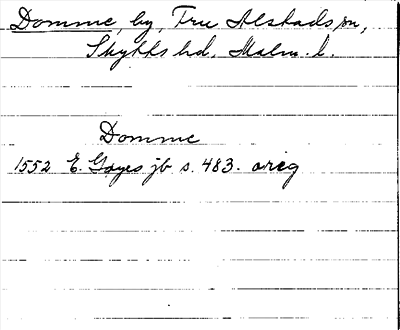 Domme, by, Fru Alstads sn,
Skytts hd, Malm. l.
Domme
1552 E. Gøyes jb s. 483. orig